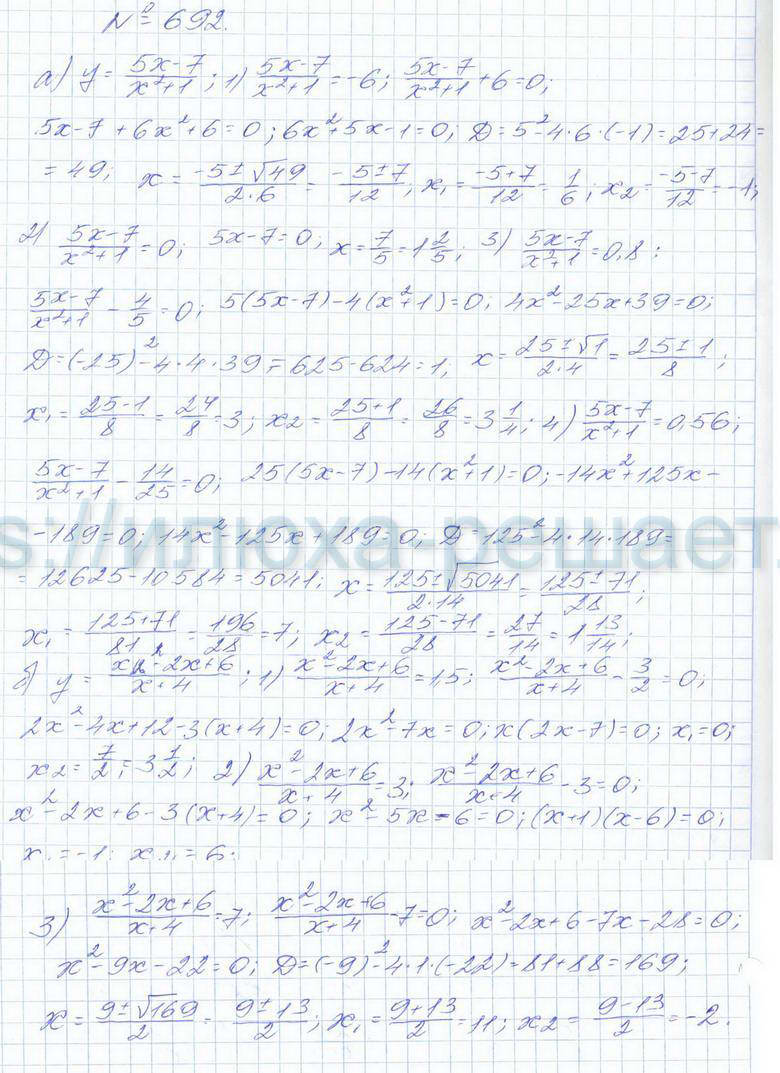 № 692.
а) y = (5x-7)/(x²+1); 1) (5x-7)/(x²+1) = -6; (5x-7)/(x²+1) + 6 = 0;
5x-7+6x²+6=0; 6x²+5x-1=0; D=5²-4·6·(-1)=25+24=
=49; x = (-5±√49)/(2·6) = (-5±7)/12; x₁ = (-5+7)/12 = 1/6; x₂ = (-5-7)/12 = -1;
2) (5x-7)/(x²+1) = 0; 5x-7=0; x = 7/5 = 1 2/5; 3) (5x-7)/(x²+1) = 0,8;
(5x-7)/(x²+1) - 4/5 = 0; 5(5x-7)-4(x²+1)=0; 4x²-25x+39=0;
D=(-25)²-4·4·39=625-624=1; x = (25±√1)/(2·4) = (25±1)/8;
x₁ = (25-1)/8 = 24/8 = 3; x₂ = (25+1)/8 = 26/8 = 3 1/4; 4) (5x-7)/(x²+1) = 0,56;
(5x-7)/(x²+1) - 14/25 = 0; 25(5x-7)-14(x²+1)=0; -14x²+125x-
-189=0; 14x²-125x+189=0; D=125²-4·14·189=
s://илюха-решает.
=12625-10584=5041; x = (125±√5041)/(2·14) = (125±71)/28;
x₁ = (125+71)/81 = 196/28 = 7; x₂ = (125-71)/28 = 27/14 = 1 13/14;
б) y = (x²-2x+6)/(x+4); 1) (x²-2x+6)/(x+4) = 1,5; (x²-2x+6)/(x+4) - 3/2 = 0;
2x²-4x+12-3(x+4)=0; 2x²-7x=0; x(2x-7)=0; x₁=0;
x₂ = 7/2; = 3 1/2; 2) (x²-2x+6)/(x+4) = 3; (x²-2x+6)/(x+4) - 3 = 0;
x²-2x+6-3(x+4)=0; x²-5x-6=0; (x+1)(x-6)=0;
x₁=-1; x₂=6.
3) (x²-2x+6)/(x+4) = 7; (x²-2x+6)/(x+4) - 7 = 0; x²-2x+6-7x-28=0;
x²-9x-22=0; D=(-9)²-4·1·(-22)=81+88=169;
x = (9±√169)/2 = (9±13)/2; x₁ = (9+13)/2 = 11; x₂ = (9-13)/2 = -2.